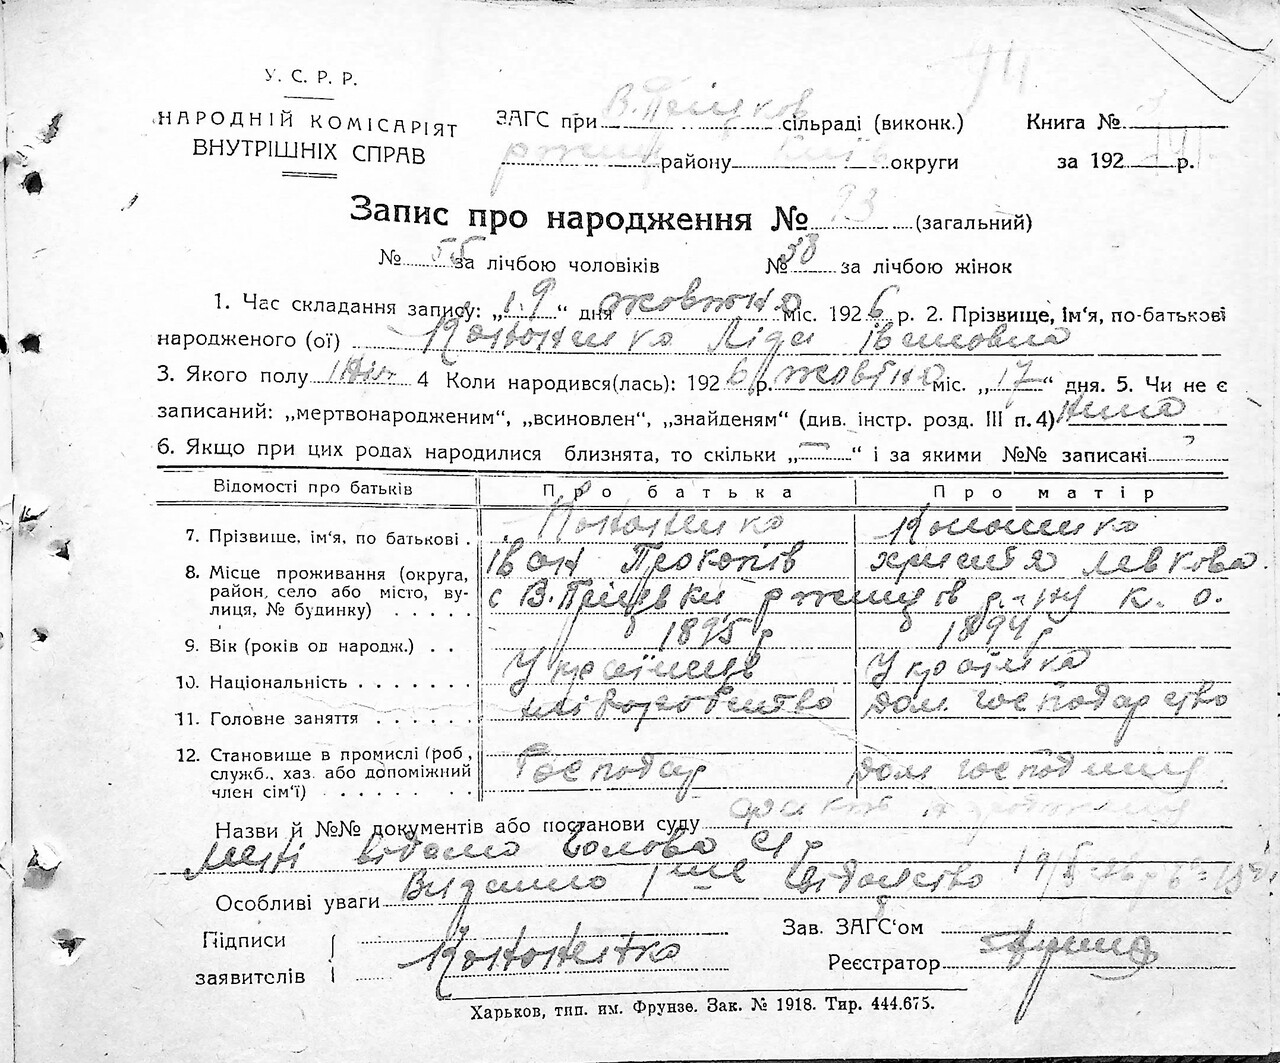 У. С. Р. Р.
НАРОДНІЙ КОМІСАРІЯТ
ВНУТРІШНІХ СПРАВ
ЗАГС при В. Пріцков сільраді (виконк.) Книга №
ржищ району Київ округи за 192 р.
Запис про народження № 93 (загальний)
№ 55 за лічбою чоловіків № 38 за лічбою жінок
1. Час складання запису: „19“ дня жовтня міс. 1926 р. 2. Прізвище, ім‘я, по-батькові
народженого (ої) Кононенко Ліда Івановна
3. Якого полу жін 4 Коли народився(лась): 1926 р. жовтня міс. „17“ дня. 5. Чи не є
записаний: „мертвонародженим“, „всиновлен“, „знайденям“ (див. інстр. розд. III п. 4)
6. Якщо при цих родах народилися близнята, то скільки „—“ і за якими №№ записані
Відомості про батьків Про батька Про матір
7. Прізвище, ім‘я, по батькові . Кононенко Кононенко
Іван Прокопів Христя Левкова.
8. Місце проживання (округа,
район, село або місто, ву-
лиця, № будинку) . . . . с В. Пріцьки ржищів р-ну К. О.
9. Вік (років од народж.) . . 1895 р 1894 р
10. Національність . . . . . . . Українець Українка
11. Головне заняття . . . . . . хліборобство дом господарство
12. Становище в промислі (роб.,
служб., хаз. або допоміжний
член сім‘ї) . . . . . . . Господар дом господиня
Назви й №№ документів або постанови суду факт
мені відомо Голова С/р
Особливі уваги Видано
Підписи
заявителів Кононенко
Зав. ЗАГС‘ом
Реєстратор
Харьков, тип. им. Фрунзе. Зак. № 1918. Тир. 444.675.